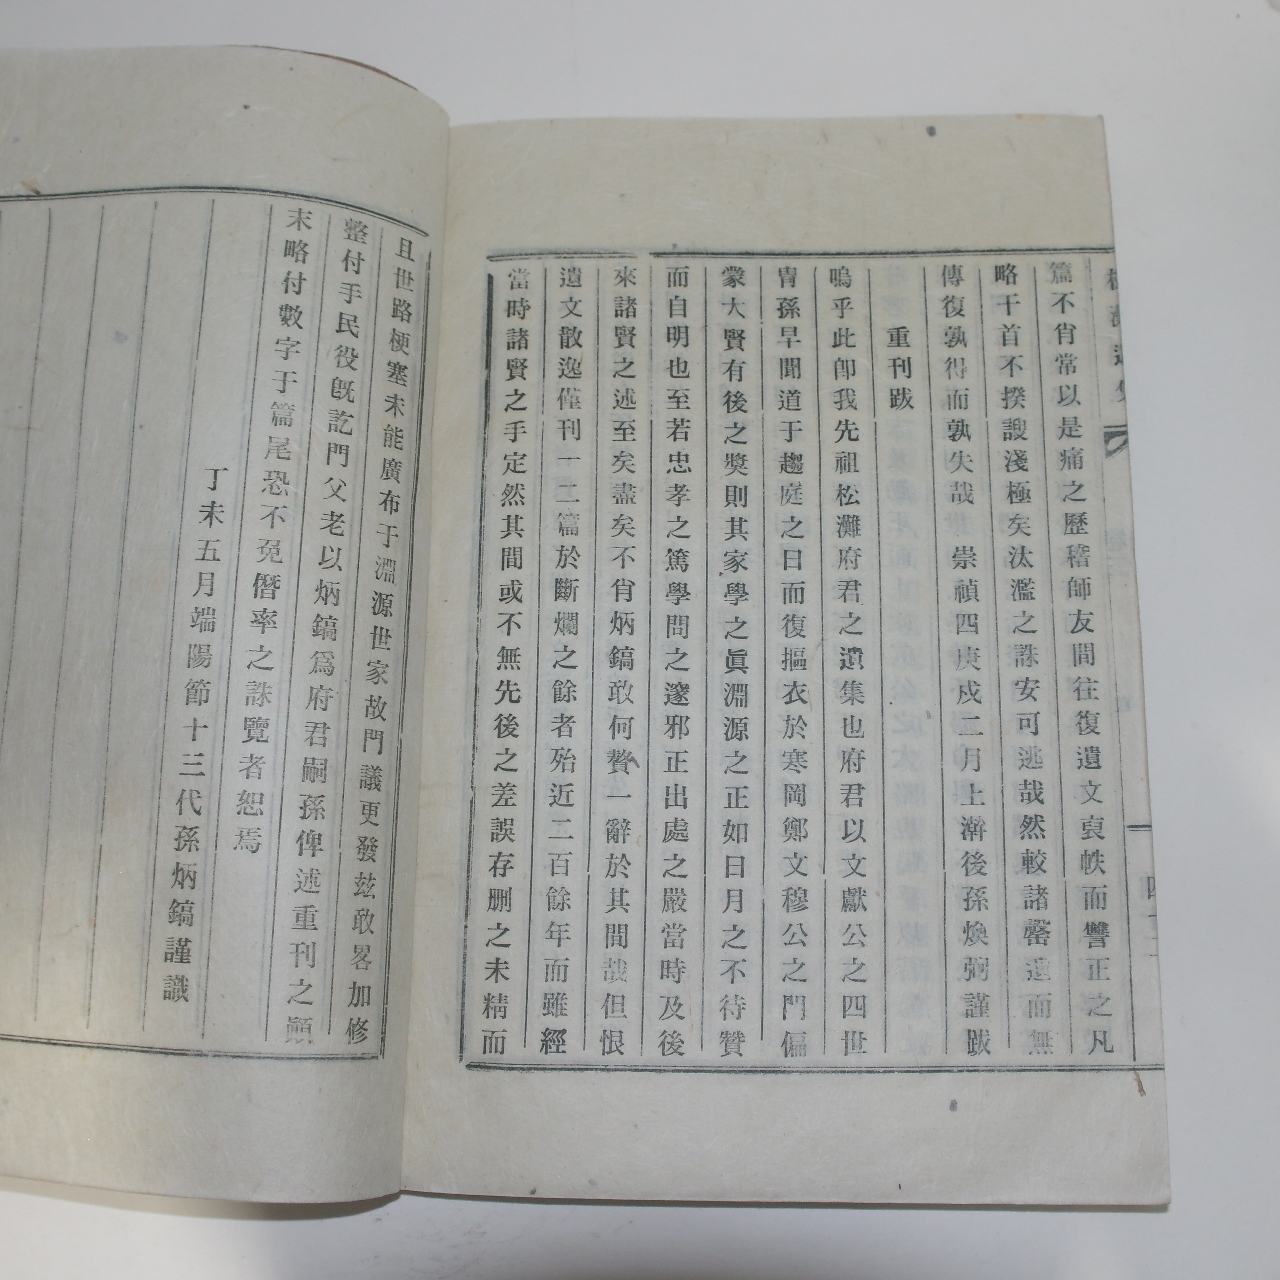 篇不肖常以是痛之歷稽師友間往復遺文裒帙而讐正之凡
略干首不揆謏淺極矣汰濫之誅安可逃哉然較諸罄遺而無
傳復孰得而孰失哉 崇禎四庚戌二月上澣後孫煥弼謹跋
重刊跋
嗚乎此卽我先祖松灘府君之遺集也府君以文獻公之四世
胄孫早聞道于趨庭之日而復摳衣於寒岡鄭文穆公之門偏
蒙大賢有後之奬則其家學之眞淵源之正如日月之不待贊
而自明也至若忠孝之篤學問之邃邪正出處之嚴當時及後
來諸賢之述至矣盡矣不肖炳鎬敢何贅一辭於其間哉但恨
遺文散逸僅刊一二篇於斷爛之餘者殆近二百餘年而雖經
當時諸賢之手定然其間或不無先後之差誤存删之未精而
且世路梗塞未能廣布于淵源世家故門議更發玆敢畧加修
整付手民役旣訖門父老以炳鎬爲府君嗣孫俾述重刊之顚
末略付數字于篇尾恐不免僭率之誅覽者恕焉
丁未五月端陽節十三代孫炳鎬謹識